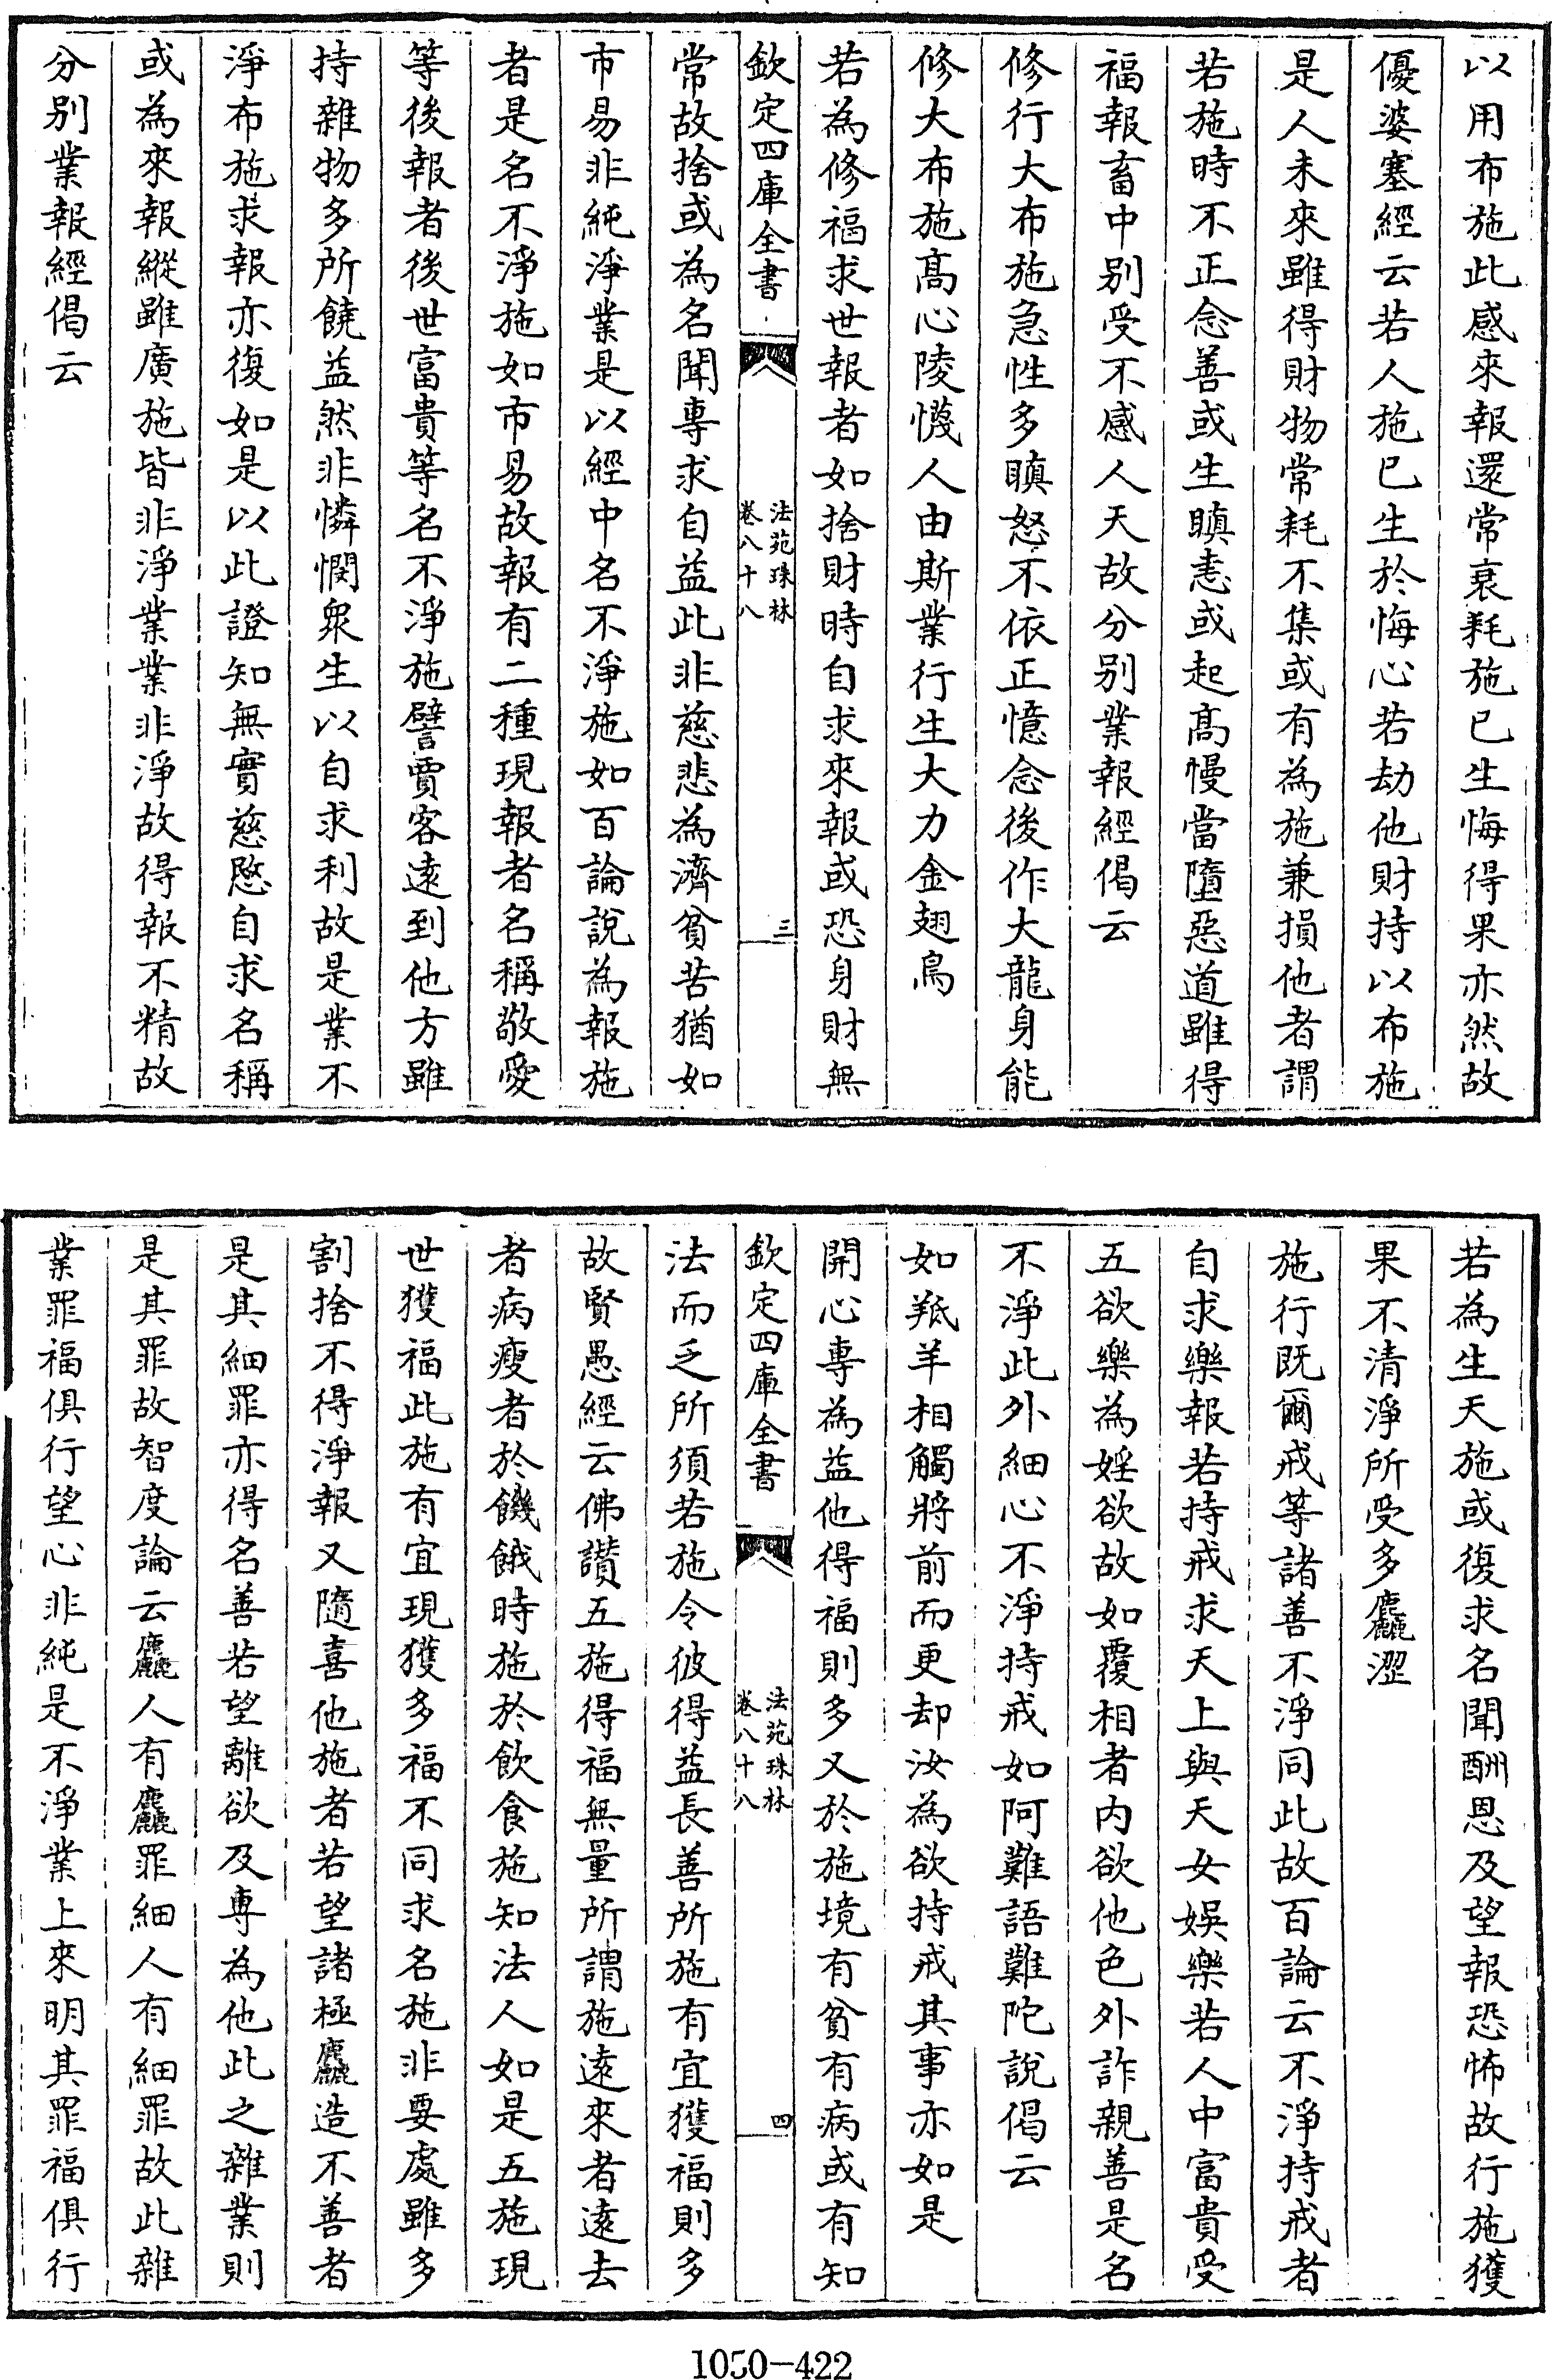 以用布施此感來報還常衰耗施已生悔得果亦然故
優婆塞經云若人施已生於悔心若劫他財持以布施
是人未來雖得財物常耗不集或有為施兼損他者謂
若施時不正念善或生瞋恚或起髙慢當墮惡道雖得
福報畜中别受不感人天故分别業報經偈云
修行大布施急性多瞋怒不依正憶念後作大龍身能
修大布施髙心陵懱人由斯業行生大力金翅鳥
若為修福求世報者如捨財時自求來報或恐身財無
欽定四庫全書
法苑珠林
卷八十八
三
常故捨或為名聞專求自益此非慈悲為濟貧苦猶如
市易非純淨業是以經中名不淨施如百論說為報施
者是名不淨施如市易故報有二種現報者名稱敬愛
等後報者後世富貴等名不淨施譬賈客遠到他方雖
持雜物多所饒益然非憐憫衆生以自求利故是業不
淨布施求報亦復如是以此證知無實慈愍自求名稱
或為來報縱雖廣施皆非淨業業非淨故得報不精故
分别業報經偈云
若為生天施或復求名聞酬恩及望報恐怖故行施獲
果不清淨所受多麤澀
施行既爾戒等諸善不淨同此故百論云不淨持戒者
自求樂報若持戒求天上與天女娛樂若人中富貴受
五欲樂為婬欲故如覆相者内欲他色外詐親善是名
不淨此外細心不淨持戒如阿難語難陀說偈云
如羝羊相觸將前而更却汝為欲持戒其事亦如是
開心專為益他得福則多又於施境有貧有病或有知
欽定四庫全書
法苑珠林
卷八十八
四
法而乏所須若施令彼得益長善所施有宜獲福則多
故賢愚經云佛讃五施得福無量所謂施遠來者遠去
者病瘦者於饑餓時施於飲食施知法人如是五施現
世獲福此施有宜現獲多福不同求名施非要處雖多
割捨不得淨報又隨喜他施者若望諸極麤造不善者
是其細罪亦得名善若望離欲及專為他此之雜業則
是其罪故智度論云麤人有麤罪細人有細罪故此雜
業罪福俱行望心非純是不淨業上來明其罪福俱行
1050-422